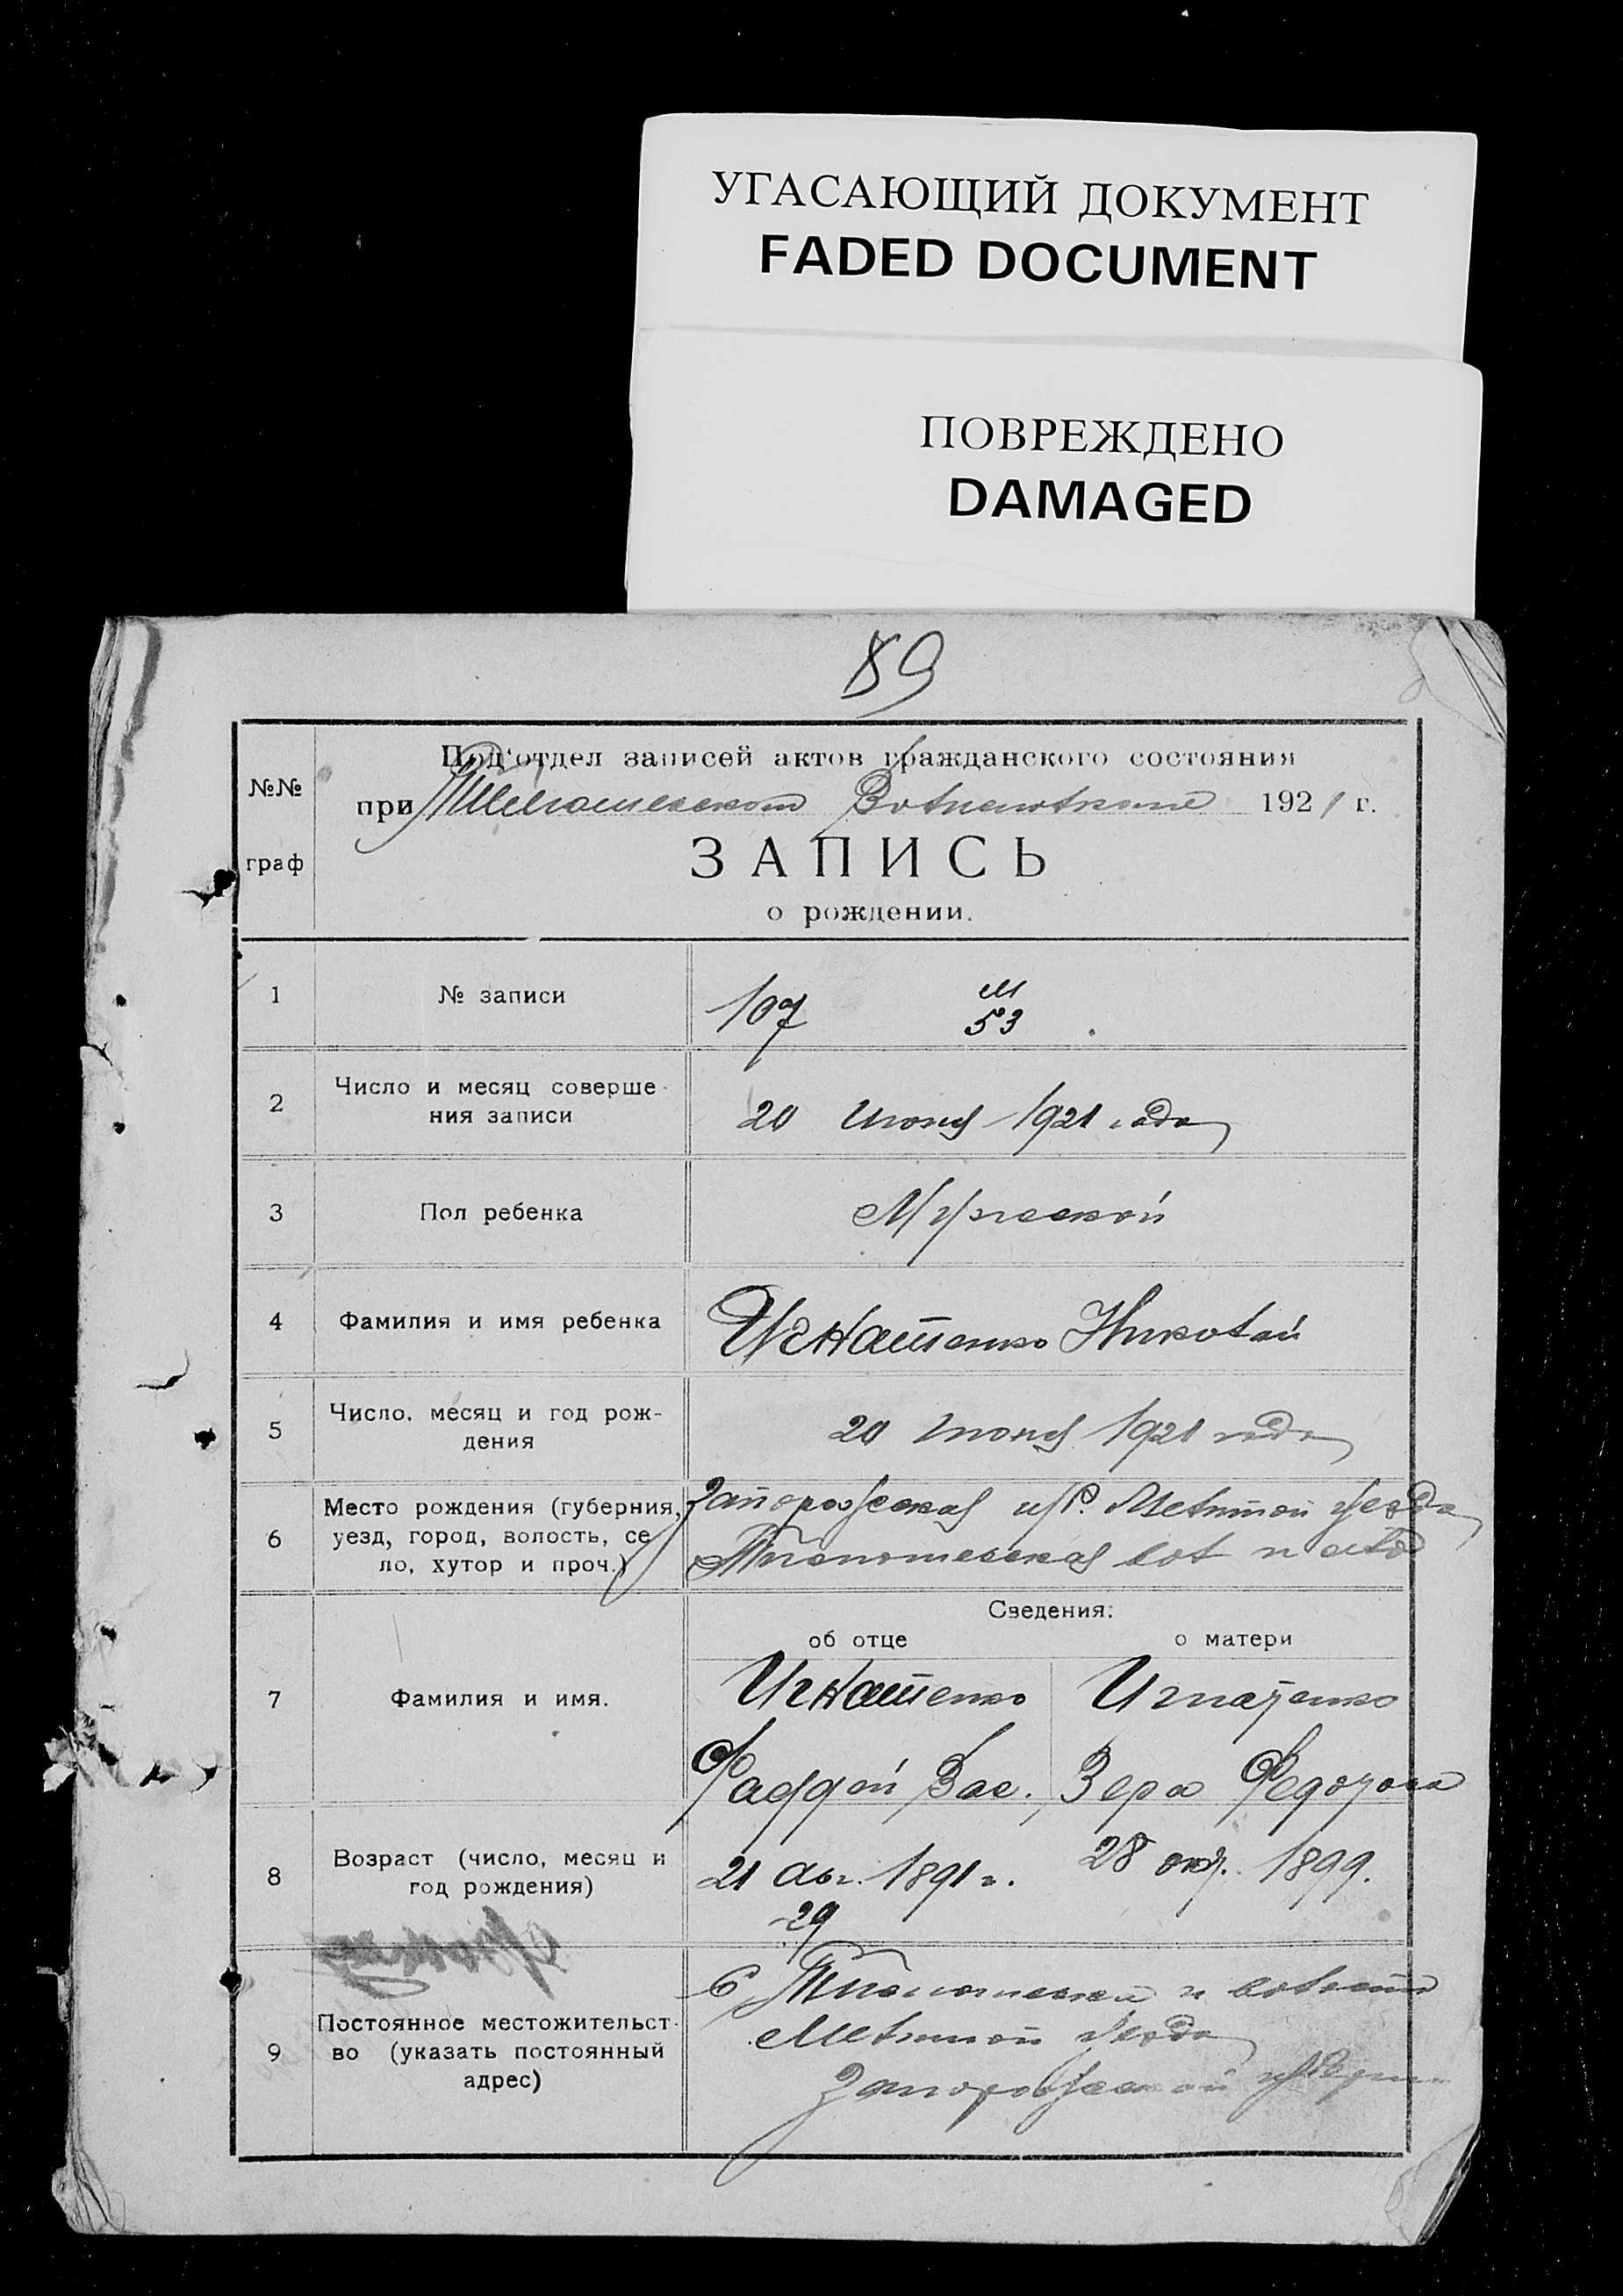 УГАСАЮЩИЙ ДОКУМЕНТ
FADED DOCUMENT
ПОВРЕЖДЕНО
DAMAGED
89
№№
граф
Под'отдел записей актов гражданского состояния
при 1921 г.
ЗАПИСЬ
о рождении.
1 № записи 107 м
53
2 Число и месяц соверше-
ния записи
20 июня 1921 года
3 Пол ребенка Мужской
4 Фамилия и имя ребенка Игнатенко Николай
5 Число, месяц и год рож-
дения
20 июня 1921 года
6 Место рождения (губерния,
уезд, город, волость, се
ло, хутор и проч.)
Запорожская губ. уезда
вол
Сведения:
об отце о матери
7 Фамилия и имя.
Игнатенко Игнатенко
Фаддей Вас. Вера Федорова
8 Возраст (число, месяц и
год рождения)
21 Авг. 1891 г. 28 окт. 1899.
29
9 Постоянное местожительст-
во (указать постоянный
адрес)
уезда
Запорожской губерни